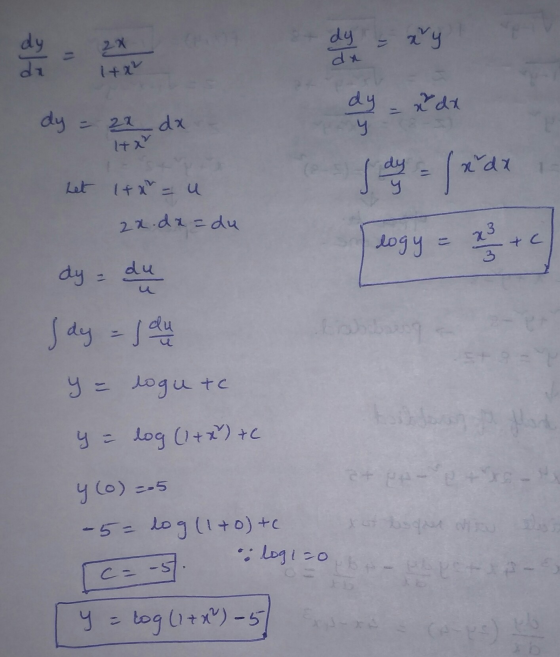 dy/dx = 2x/(1+x²)
dy = 2x/(1+x²) dx
Let 1+x² = u
2x.dx = du
dy = du/u
∫dy = ∫du/u
y = logu + c
y = log(1+x²) + c
y(0) = -5
-5 = log(1+0) + c
c = -5. ∵ log1 = 0
y = log(1+x²) - 5
dy/dx = x²y
dy/y = x²dx
∫dy/y = ∫x²dx
logy = x³/3 + c